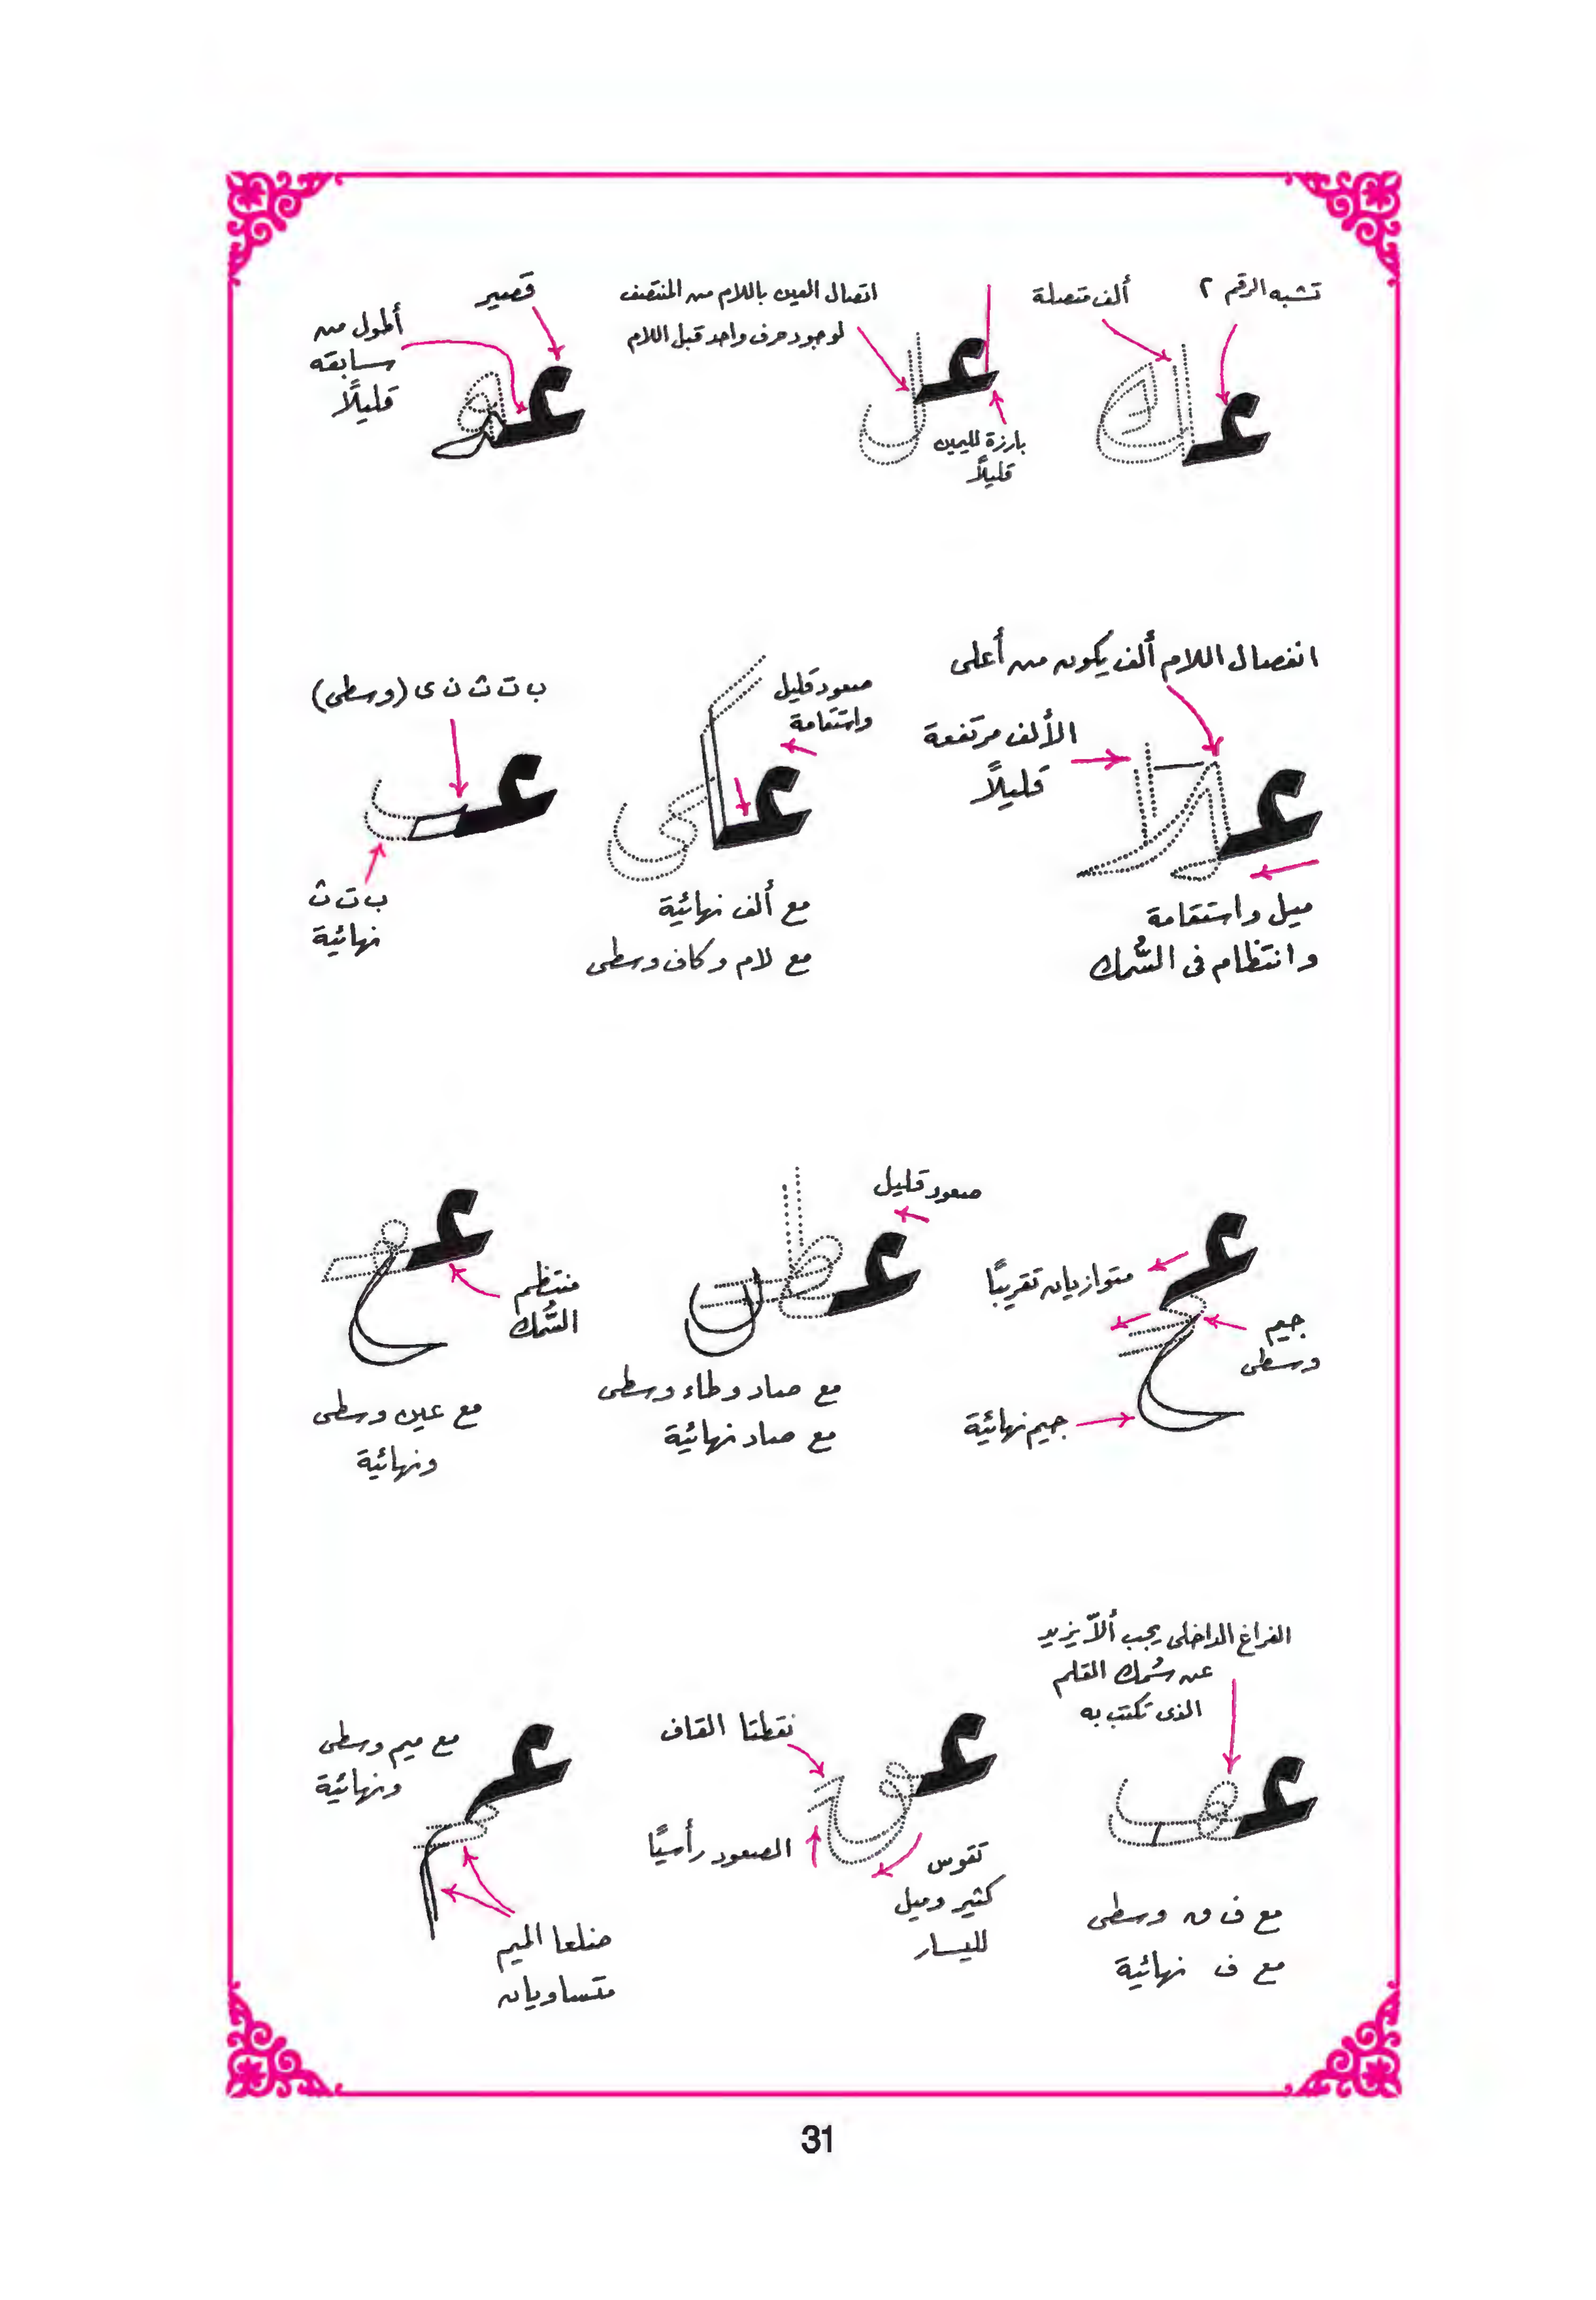 تشبه الرقم ٢
ألف متصلة
اتصال العين باللام من المنتصف
لوجود حرف واحد قبل اللام
بارزة لليمين
قليلاً
قصير
أطول من
سابقه
قليلاً
انفصال اللام ألف يكون من أعلى
الألف مرتفعة
قليلاً
ميل واستقامة
وانتظام فى السُّمك
صعود قليل
واستقامة
مع ألف نهائية
مع لام وكاف وسطى
ب ت ث ن ى (وسطى)
ب ت ث
نهائية
متوازيان تقريبًا
جيم
وسطى
جيم نهائية
صعود قليل
مع صاد وطاء وسطى
مع صاد نهائية
منتظم
السُّمك
مع عين وسطى
ونهائية
الفراغ الداخلى يجب ألاّ يزيد
عن سُمك القلم
الذى تكتب به
مع ف ق وسطى
مع ف نهائية
نقطتا القاف
الصعود رأسيًا
تقوس
كثير وميل
لليسار
مع ميم وسطى
ونهائية
ضلعا الميم
متساويان
31